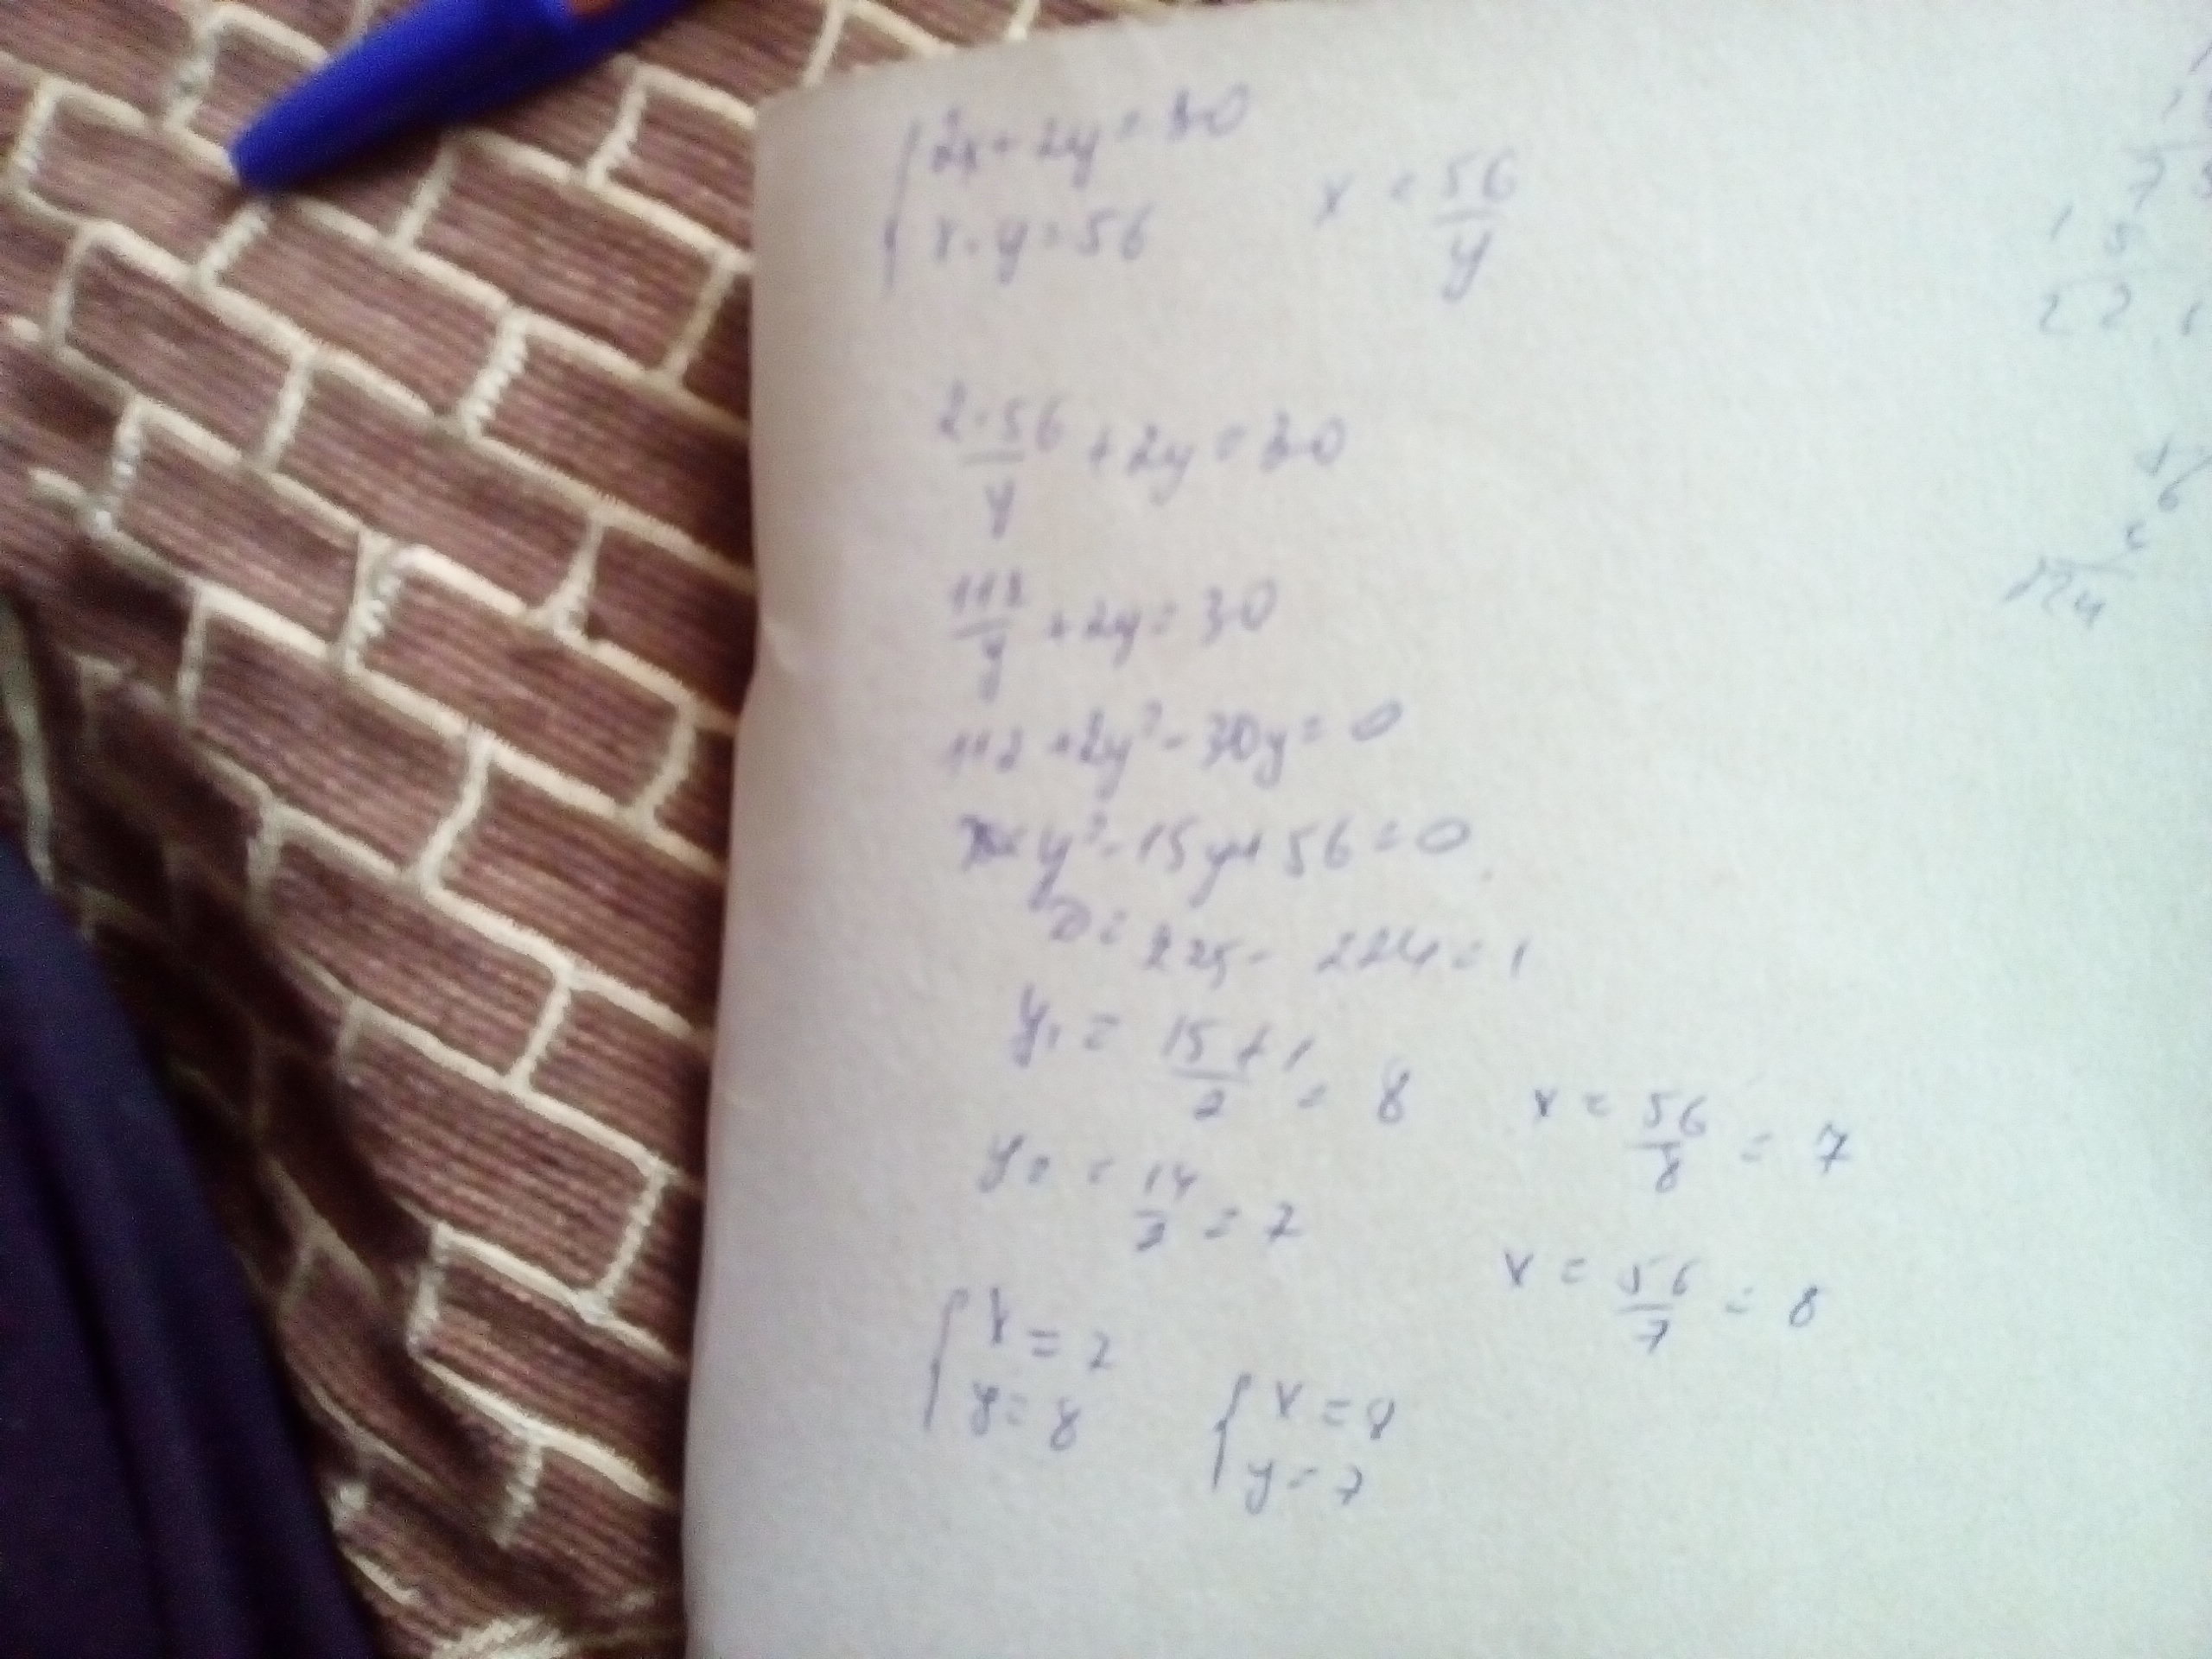 { 2x + 2y = 30
x · y = 56
x = 56/y
2·56/y + 2y = 30
112/y + 2y = 30
112 + 2y² - 30y = 0
y² - 15y + 56 = 0
D = 225 - 224 = 1
y₁ = (15 + 1)/2 = 8
x = 56/8 = 7
y₂ = 14/2 = 7
x = 56/7 = 8
{ x = 7
y = 8
{ x = 8
y = 7